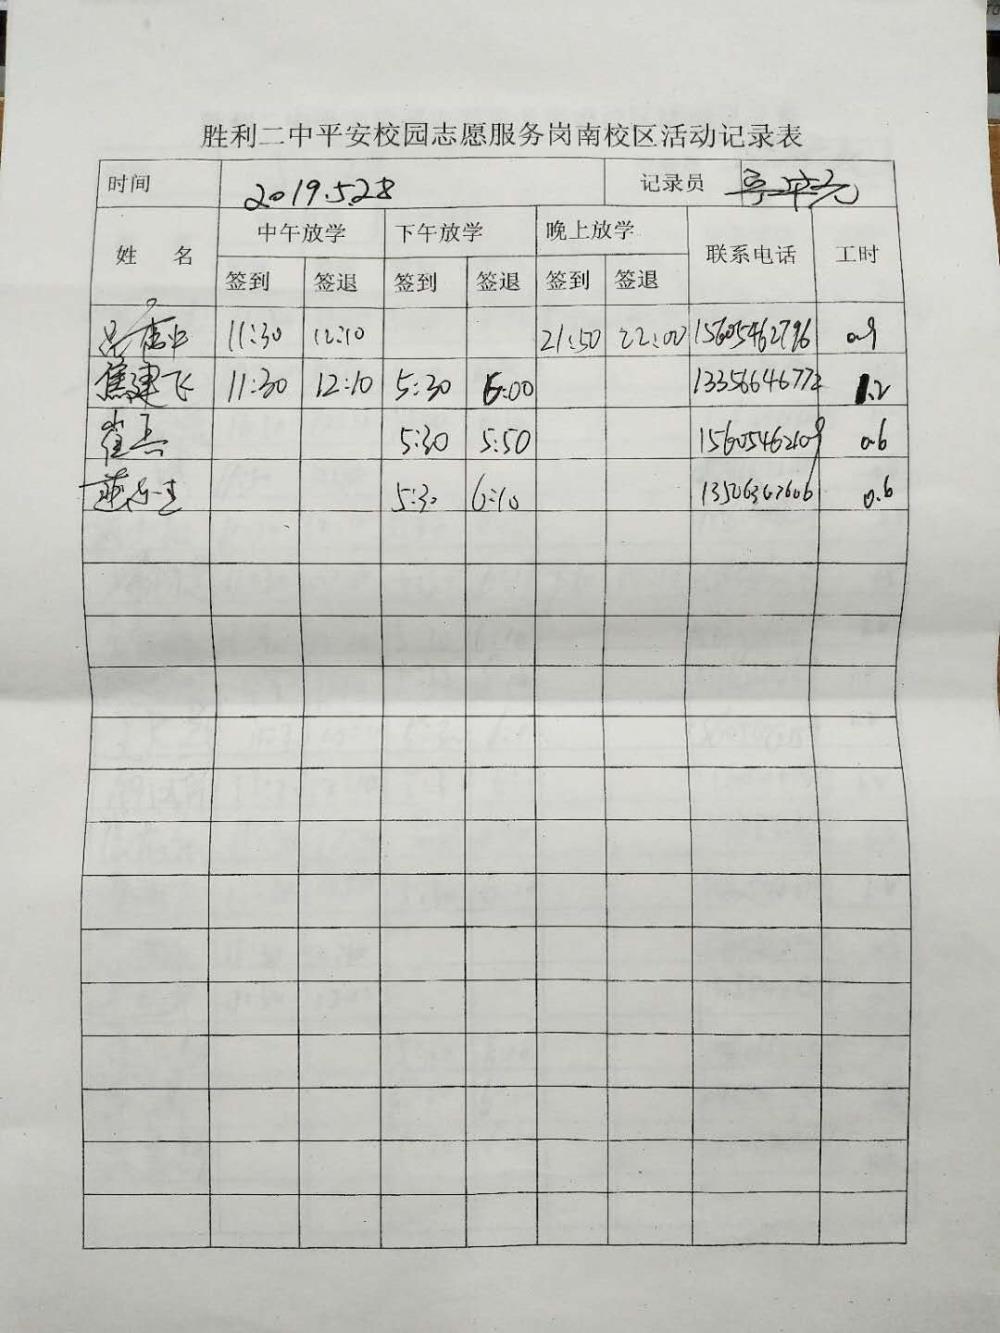 胜利二中平安校园志愿服务岗南校区活动记录表
时间 2019.5.28 记录员
姓 名 中午放学 下午放学 晚上放学 联系电话 工时
签到 签退 签到 签退 签到 签退
11:30 12:10 21:50 22:00 15605462796 0.9
焦建飞 11:30 12:10 5:30 6:00 13356646772 1.2
崔 5:30 5:50 15605462109 0.6
5:30 6:10 13506367606 0.6